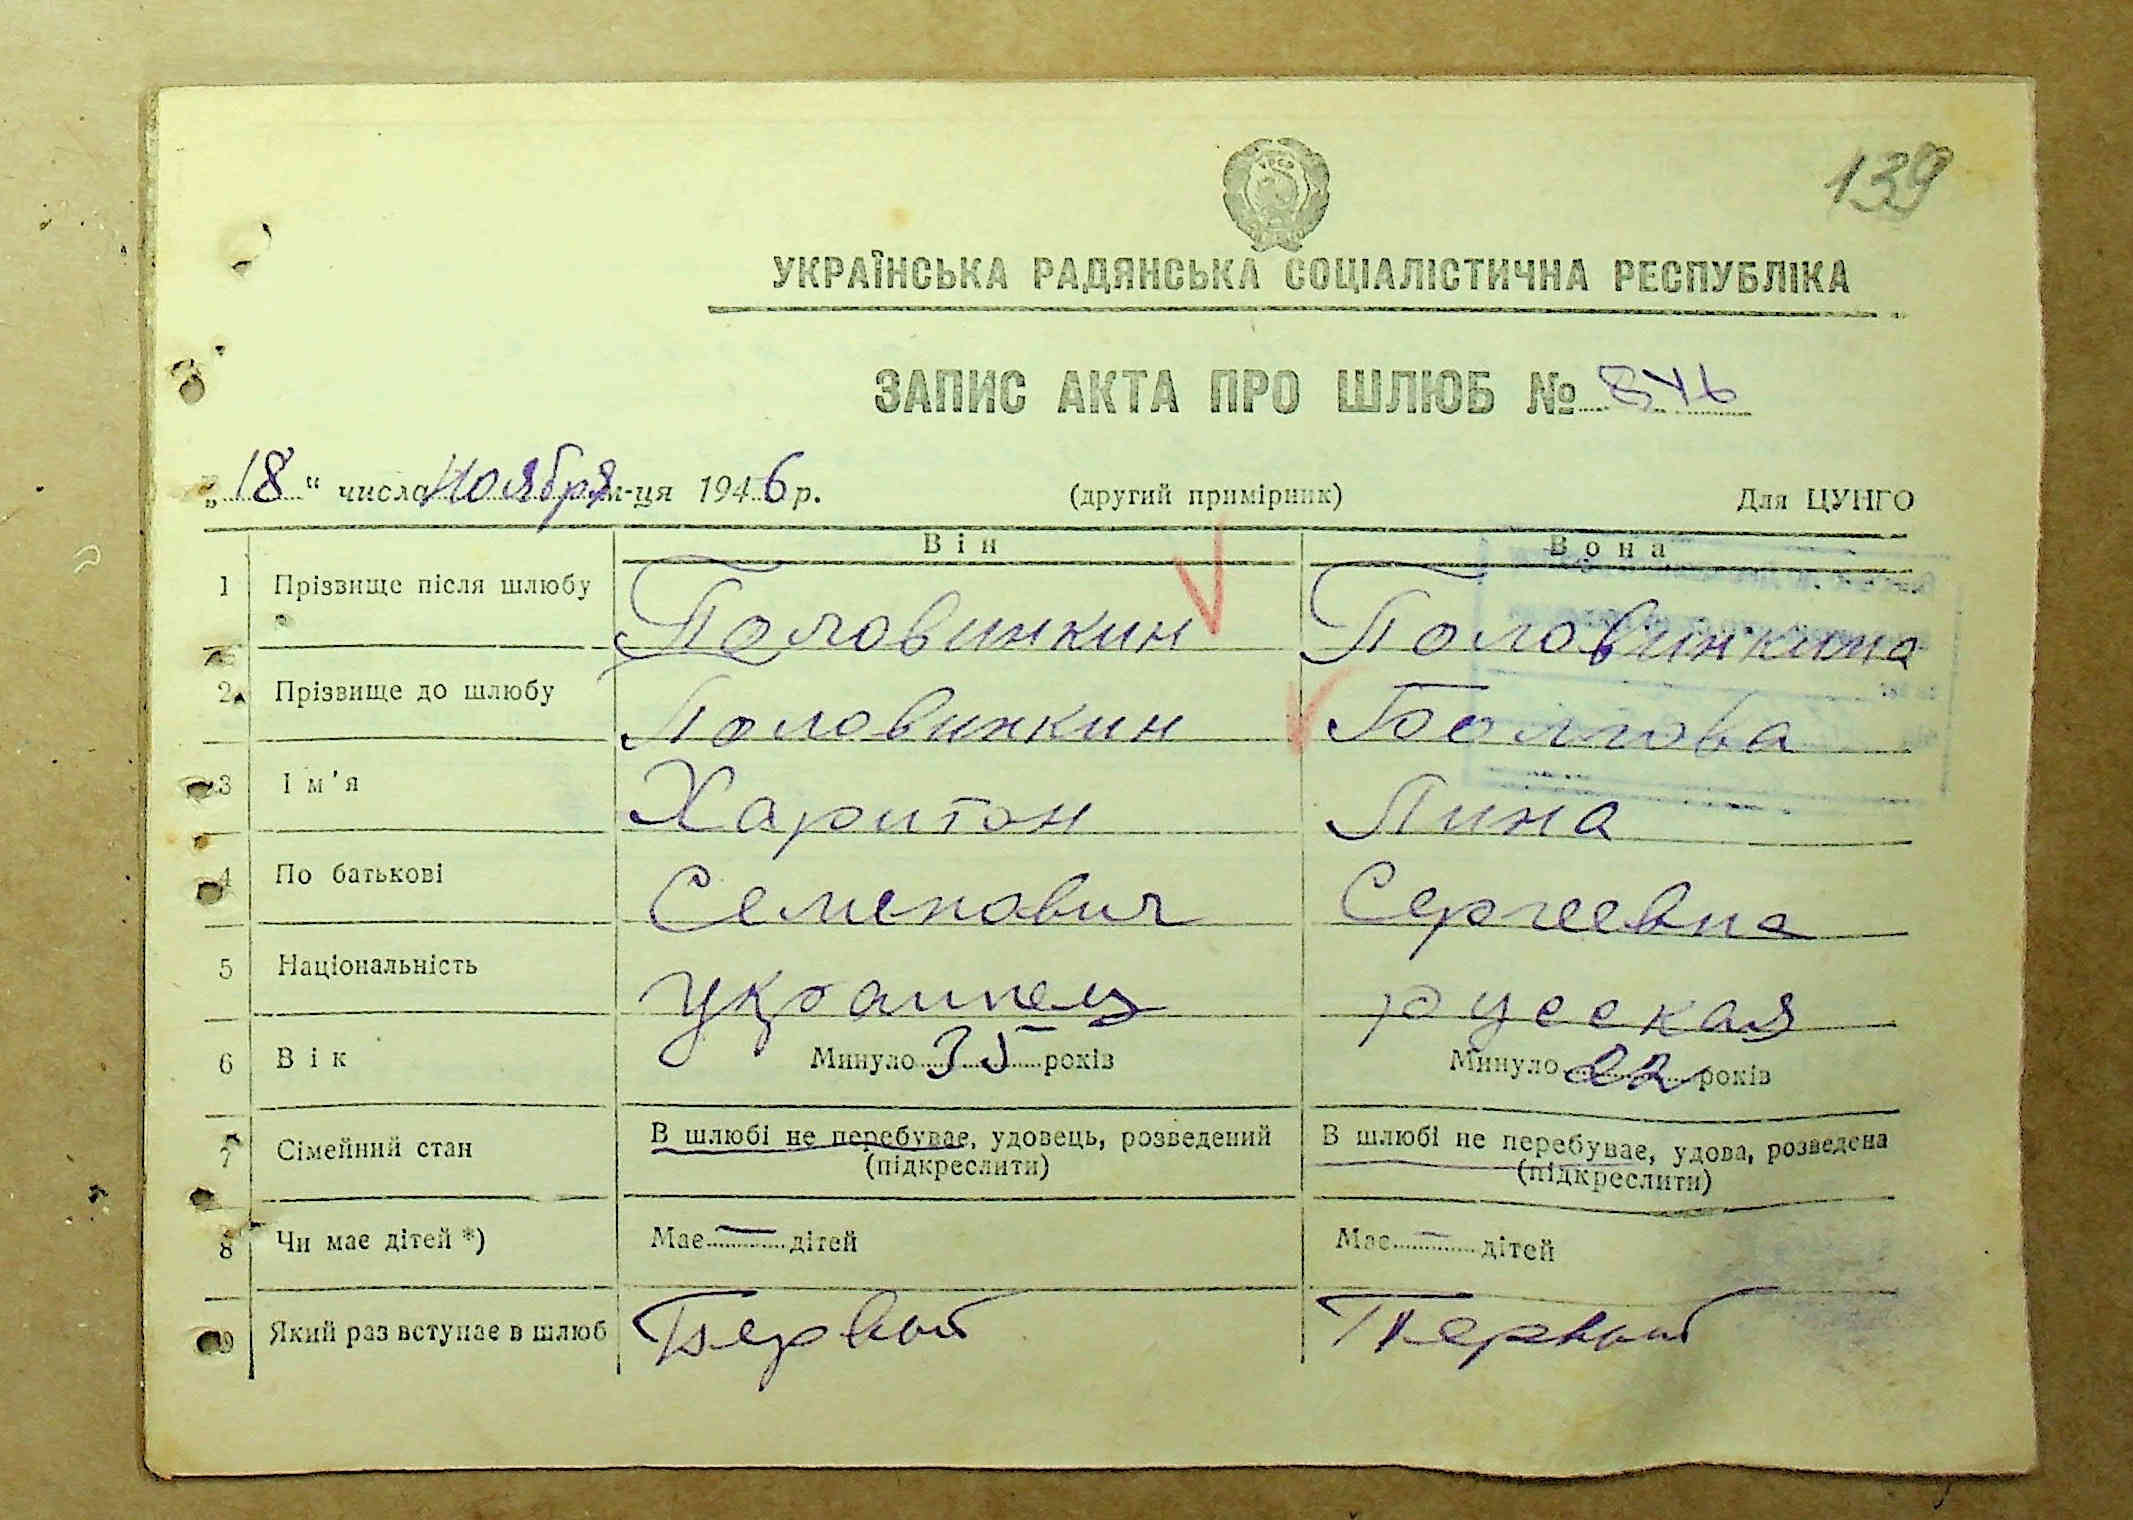 139
УКРАЇНСЬКА РАДЯНСЬКА СОЦІАЛІСТИЧНА РЕСПУБЛІКА
ЗАПИС АКТА ПРО ШЛЮБ № 846
„18“ числа Ноября м-ця 1946 р. (другий примірник) Для ЦУНГО
Він Вона
1 Прізвище після шлюбу Половинкин Половинкина
2 Прізвище до шлюбу Половинкин Болгова
3 Ім'я Харитон Лина
4 По батькові Семенович Сергеевна
5 Національність украинец русская
6 Вік Минуло 35 років Минуло 22 років
7 Сімейний стан В шлюбі не перебуває, удовець, розведений В шлюбі не перебуває, удова, розведена
(підкреслити) (підкреслити)
8 Чи має дітей *) Має — дітей Має — дітей
9 Який раз вступає в шлюб Первый Первый